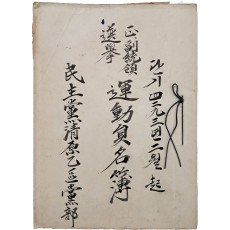 단기四二九三年二月 起
正副統領
選擧
運動員名簿
民主黨淸原乙區黨部